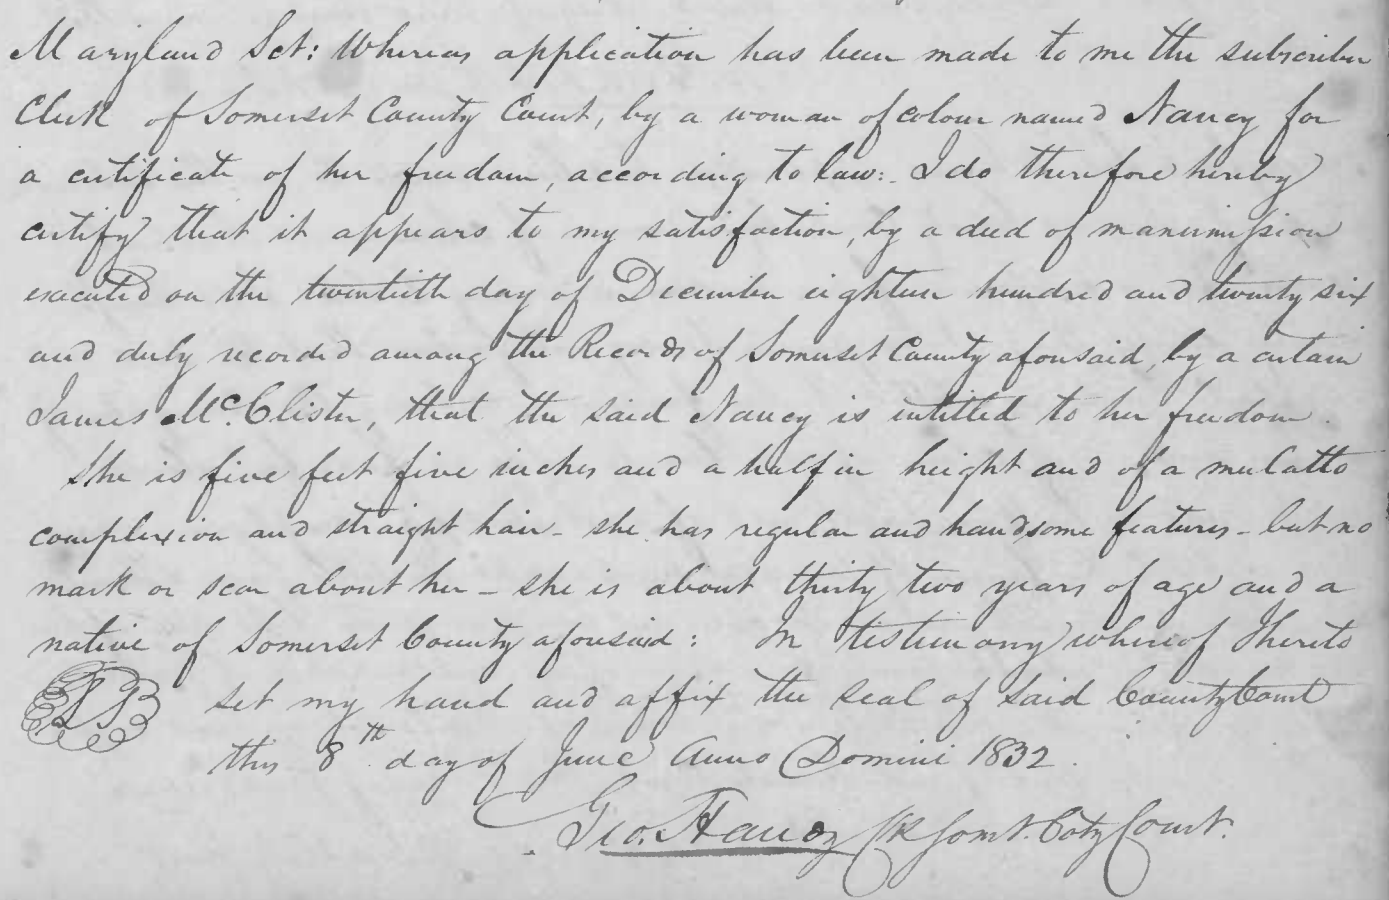 Maryland Sct: Whereas application has been made to me the subscriber
Clerk of Somerset County Court, by a woman of colour named Nancy for
a certificate of her freedom, according to law:- I do therefore hereby
certify that it appears to my satisfaction, by a deed of manumission
executed on the twentieth day of December eighteen hundred and twenty six
and duly recorded among the Records of Somerset County aforesaid, by a certain
James McClister, that the said Nancy is intitled to her freedom.
She is five feet five inches and a half in height and of a mulatto
complexion and straight hair - she has regular and handsome features - but no
mark or scar about her - she is about thirty two years of age and a
native of Somerset County aforesaid: In testimony whereof I hereto
set my hand and affix the seal of said County Court
this 8th day of June Anno Domini 1832.
Geo. Handy Clk Somt. Coty Court.